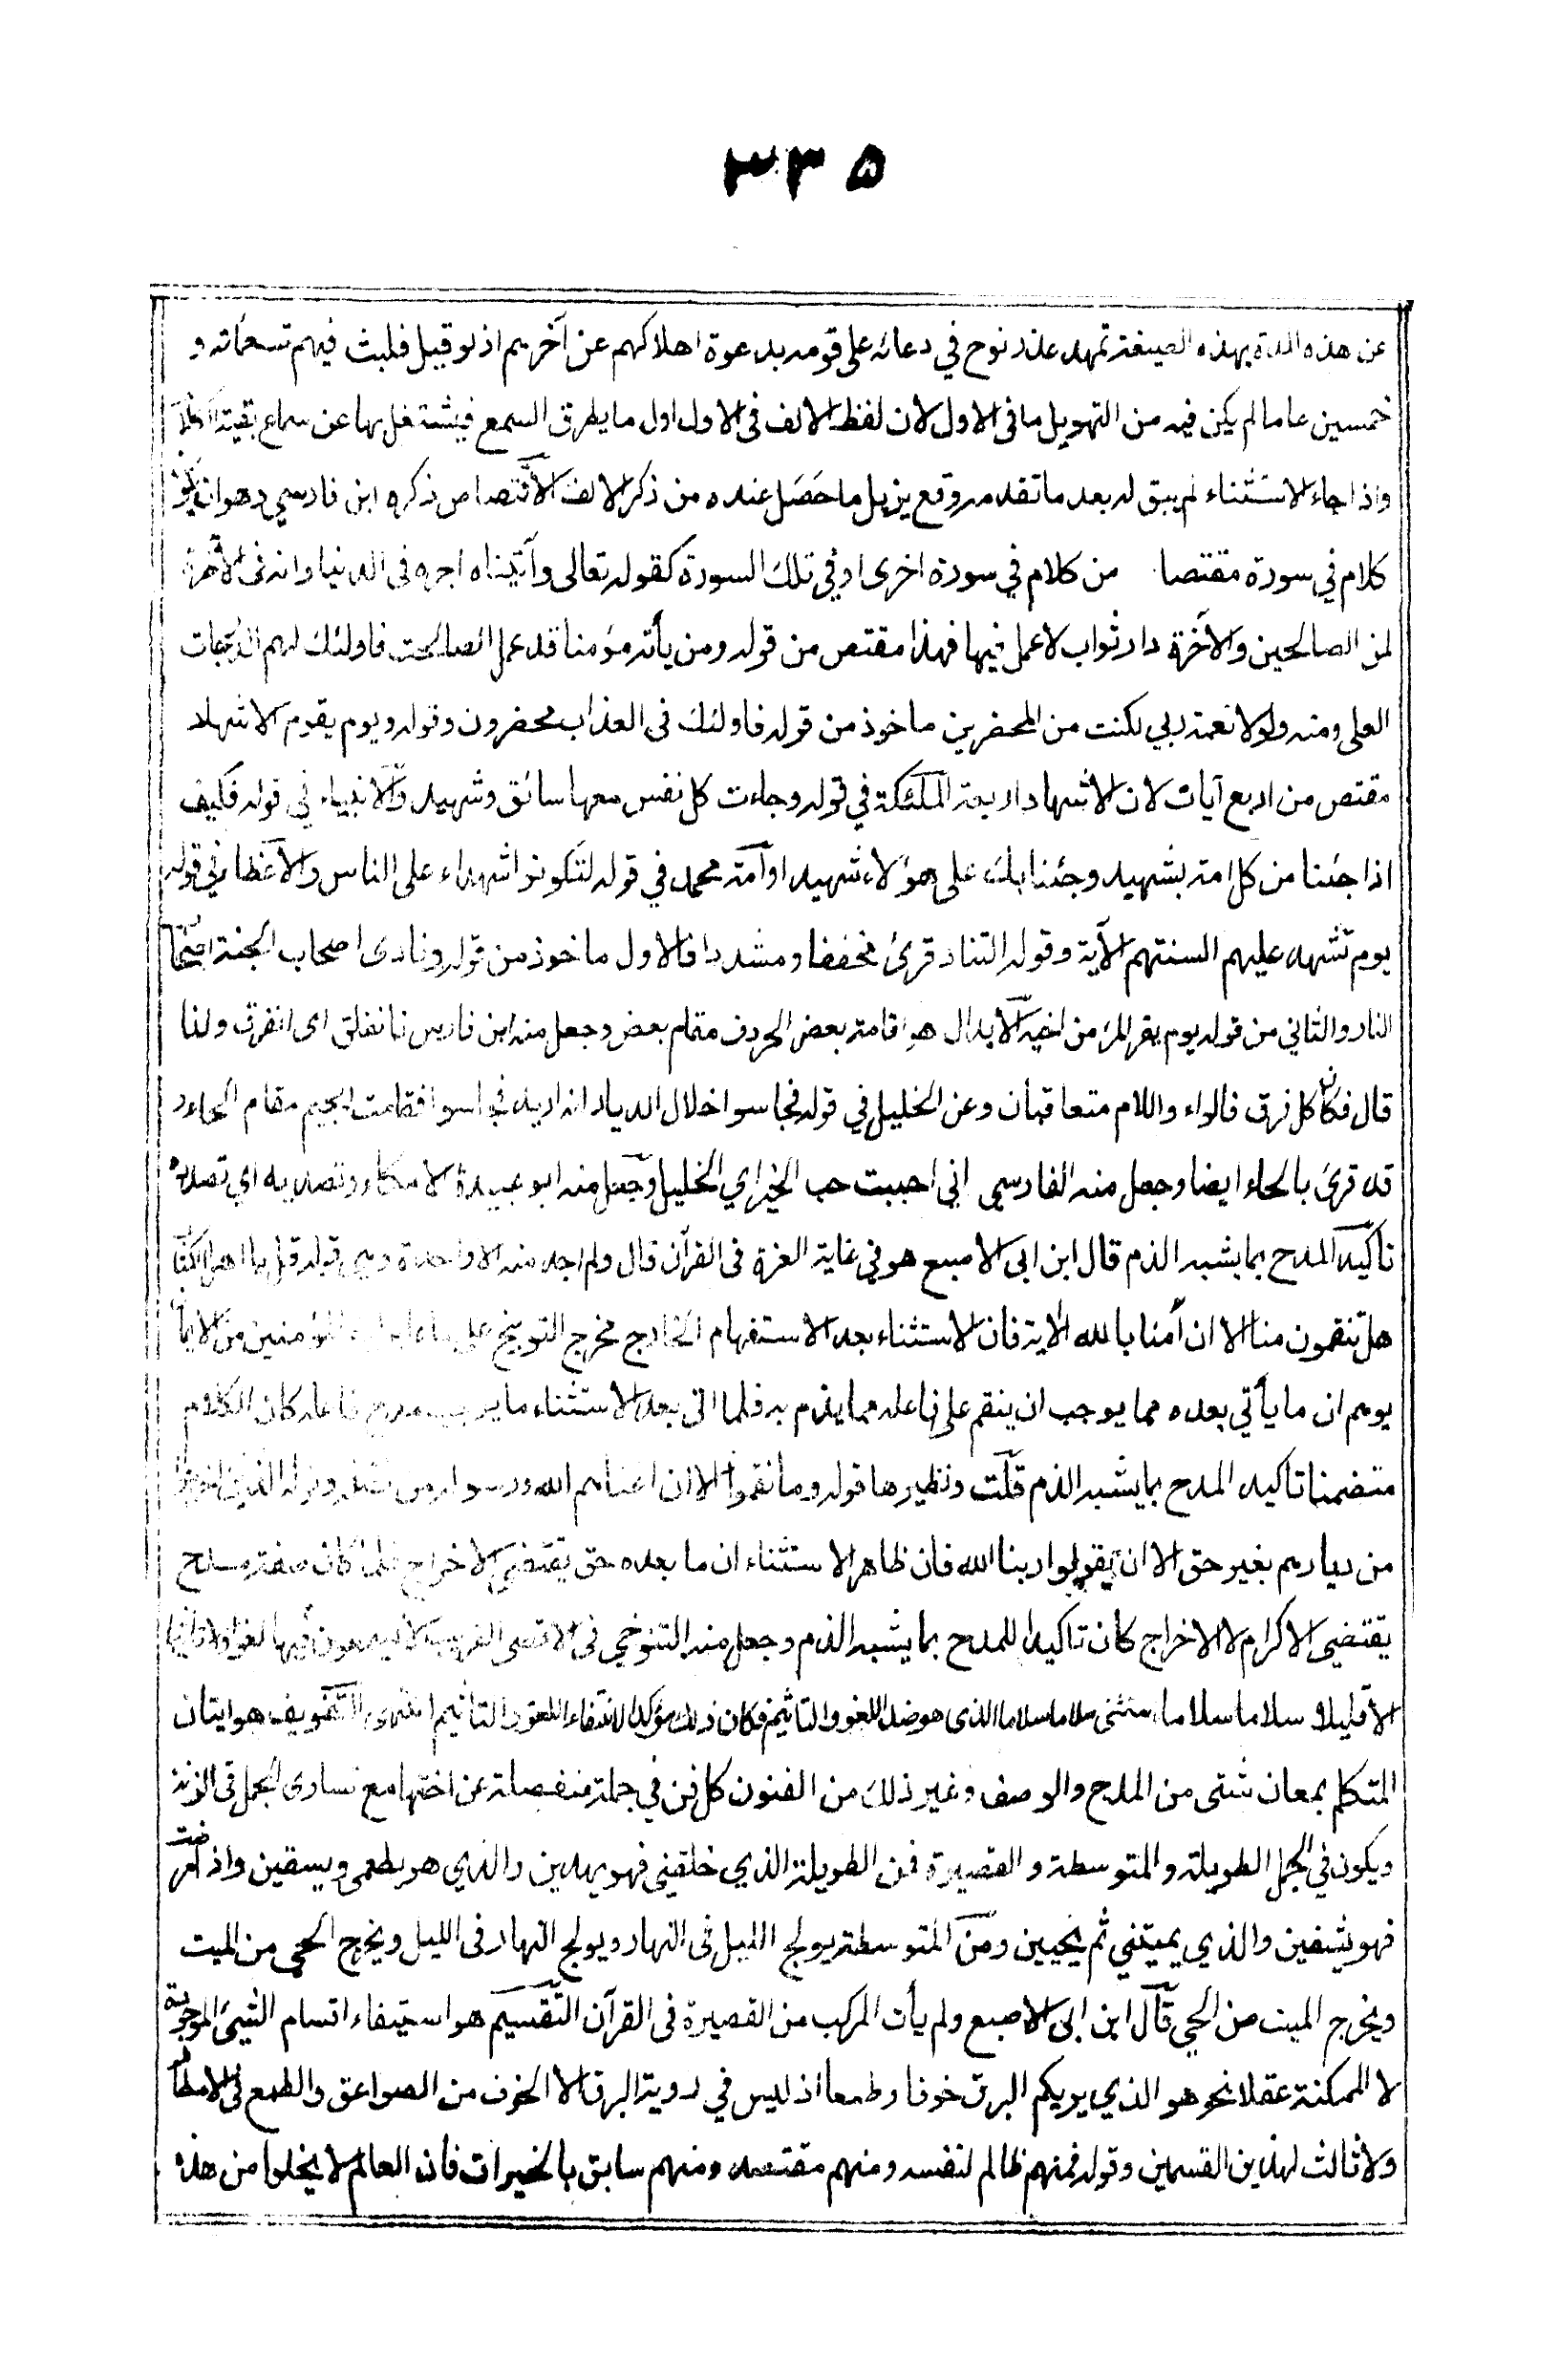 ۳۳۵
عن هذه المدة بهذه الصيغة تمهد عذر نوح في دعائه على قومه بدعوة اهلاكهم عن آخرهم اذ لو قيل فلبث فيهم تسعمائة و
خمسين عاما لم يكن فيه من التهويل ما فى الاول لان لفظ الالف فى الاول اول ما يطرق السمع فيشتغل بها عن سماع بقية الكلام
واذا جاء الاستثناء لم يبق له بعد ما تقدمه وقع يزيل ما حصل عنده من ذكر الالف الاقتصاص ذكره ابن فارسي وهو ان يكون
كلام في سورة مقتصا من كلام في سورة اخرى او في تلك السورة كقوله تعالى وآتيناه اجره فى الدنيا وانه فى الآخرة
لمن الصالحين والآخرة دار ثواب لا عمل فيها فهذا مقتص من قوله ومن يأته مؤمنا قد عمل الصالحت فاولئك لهم الدرجات
العلى ومنه ولولا نعمة ربي لكنت من المحضرين ماخوذ من قوله فاولئك فى العذاب محضرون وقوله ويوم يقوم الاشهاد
مقتص من اربع آيات لان الاشهاد اربعة الملئكة في قوله وجاءت كل نفس معها سائق وشهيد والانبياء في قوله فكيف
اذا جئنا من كل امة بشهيد وجئنا بك على هؤلاء شهيدا وآمة محمد في قوله لتكونوا شهداء على الناس والاعضاء في قوله
يوم تشهد عليهم السنتهم الآية وقوله التناد قرئ مخففا ومشددا فالاول ماخوذ من قوله ونادى اصحاب الجنة اصحاب
النار والثاني من قوله يوم يفر المرء من اخيه الابدال هو اقامة بعض الحروف مقام بعض وجعل منه ابن فارس فانفلق اى انفرق ولذا
قال فكان كل فرق فالراء واللام متعاقبان وعن الخليل في قوله فجاسوا خلال الديار انه اريد فحاسوا فقامت الجيم مقام الحاء و
قد قرئ بالحاء ايضا وجعل منه الفارسي اني احببت حب الخير اي الخليل وجعل منه ابو عبيدة الا مكاء وتصدية اي تصددة
تاكيد المدح بما يشبه الذم قال ابن ابى الاصبع هو في غاية العزة فى القرآن قال ولم اجد منه الا واحدة وهي قوله قل يا اهل الكتاب
هل تنقمون منا الا ان آمنا بالله الآية فان الاستثناء بعد الاستفهام الخارج مخرج التوبيخ على المؤمنين من الايمان
يوهم ان ما يأتي بعده مما يوجب ان ينقم على فاعله مما يذم به فلما اتى بعد الاستثناء ما يوجب مدح فاعله كان الكلام
متضمنا تاكيد المدح بما يشبه الذم قلت ونظيرها قوله وما نقموا الا ان اغناهم الله ورسوله من فضله وقوله الذين اخرجوا
من ديارهم بغير حق الا ان يقولوا ربنا الله فان ظاهر الاستثناء ان ما بعده حق يقتضي الاخراج فلما كان صفة مدح
يقتضي الاكرام لا الاخراج كان تاكيدا للمدح بما يشبه الذم وجعل منه التنوخي فى الاقصى القريب لا يسمعون فيها لغوا ولا تاثيما
الا قليلا سلاما سلاما استثنى سلاما سلاما الذى هو ضد اللغو والتاثيم فكان ذلك مؤكدا لانتفاء اللغو والتاثيم انتهى التفويف هو ايتان
المتكلم بمعان شتى من المدح والوصف وغير ذلك من الفنون كل فن في جملة منفصلة عن اختها مع تساوى الجمل فى الزنة
ويكون في الجمل الطويلة والمتوسطة والقصيرة فمن الطويلة الذي خلقني فهو يهدين والذي هو يطعمى ويسقين واذا مرضت
فهو يشفين والذي يميتني ثم يحيين ومن المتوسطة يولج الليل فى النهار ويولج النهار فى الليل ويخرج الحي من الميت
ويخرج الميت من الحي قال ابن ابى الاصبع ولم يأت المركب من القصيرة فى القرآن التقسيم هو استيفاء اقسام الشيئ الموجودة
لا الممكنة عقلا نحو هو الذي يريكم البرق خوفا وطمعا اذ ليس في روية البرق الا الخوف من الصواعق والطمع في الامطار
ولا ثالث لهذين القسمين وقوله فمنهم ظالم لنفسه ومنهم مقتصد ومنهم سابق بالخيرات فان العالم لا يخلوا من هذه